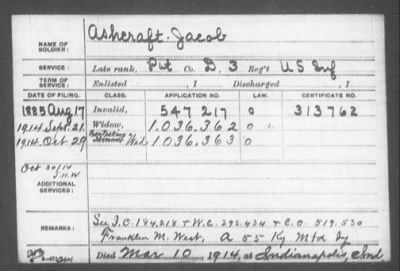 NAME OF SOLDIER: Ashcraft Jacob
SERVICE: Late rank, Pvt Co. D, 3 Reg't US Inf
TERM OF SERVICE: Enlisted , 1 Discharged , 1
DATE OF FILING. CLASS. APPLICATION NO. LAW. CERTIFICATE NO.
1885 Aug 17 Invalid, 547217 0 313762
1914 Sept. 21. Widow, 1.036.362 0
1914. Oct 29 Wid 1.036.363 0
Oct 30/14
ADDITIONAL SERVICES:
REMARKS: See I.O. 194.218 + W.C. 292.434 + C.O. 519.530
Franklin M. West, A 55 Ky Mtd Inf
Died Mar 10, 1914, at Indianapolis, Ind